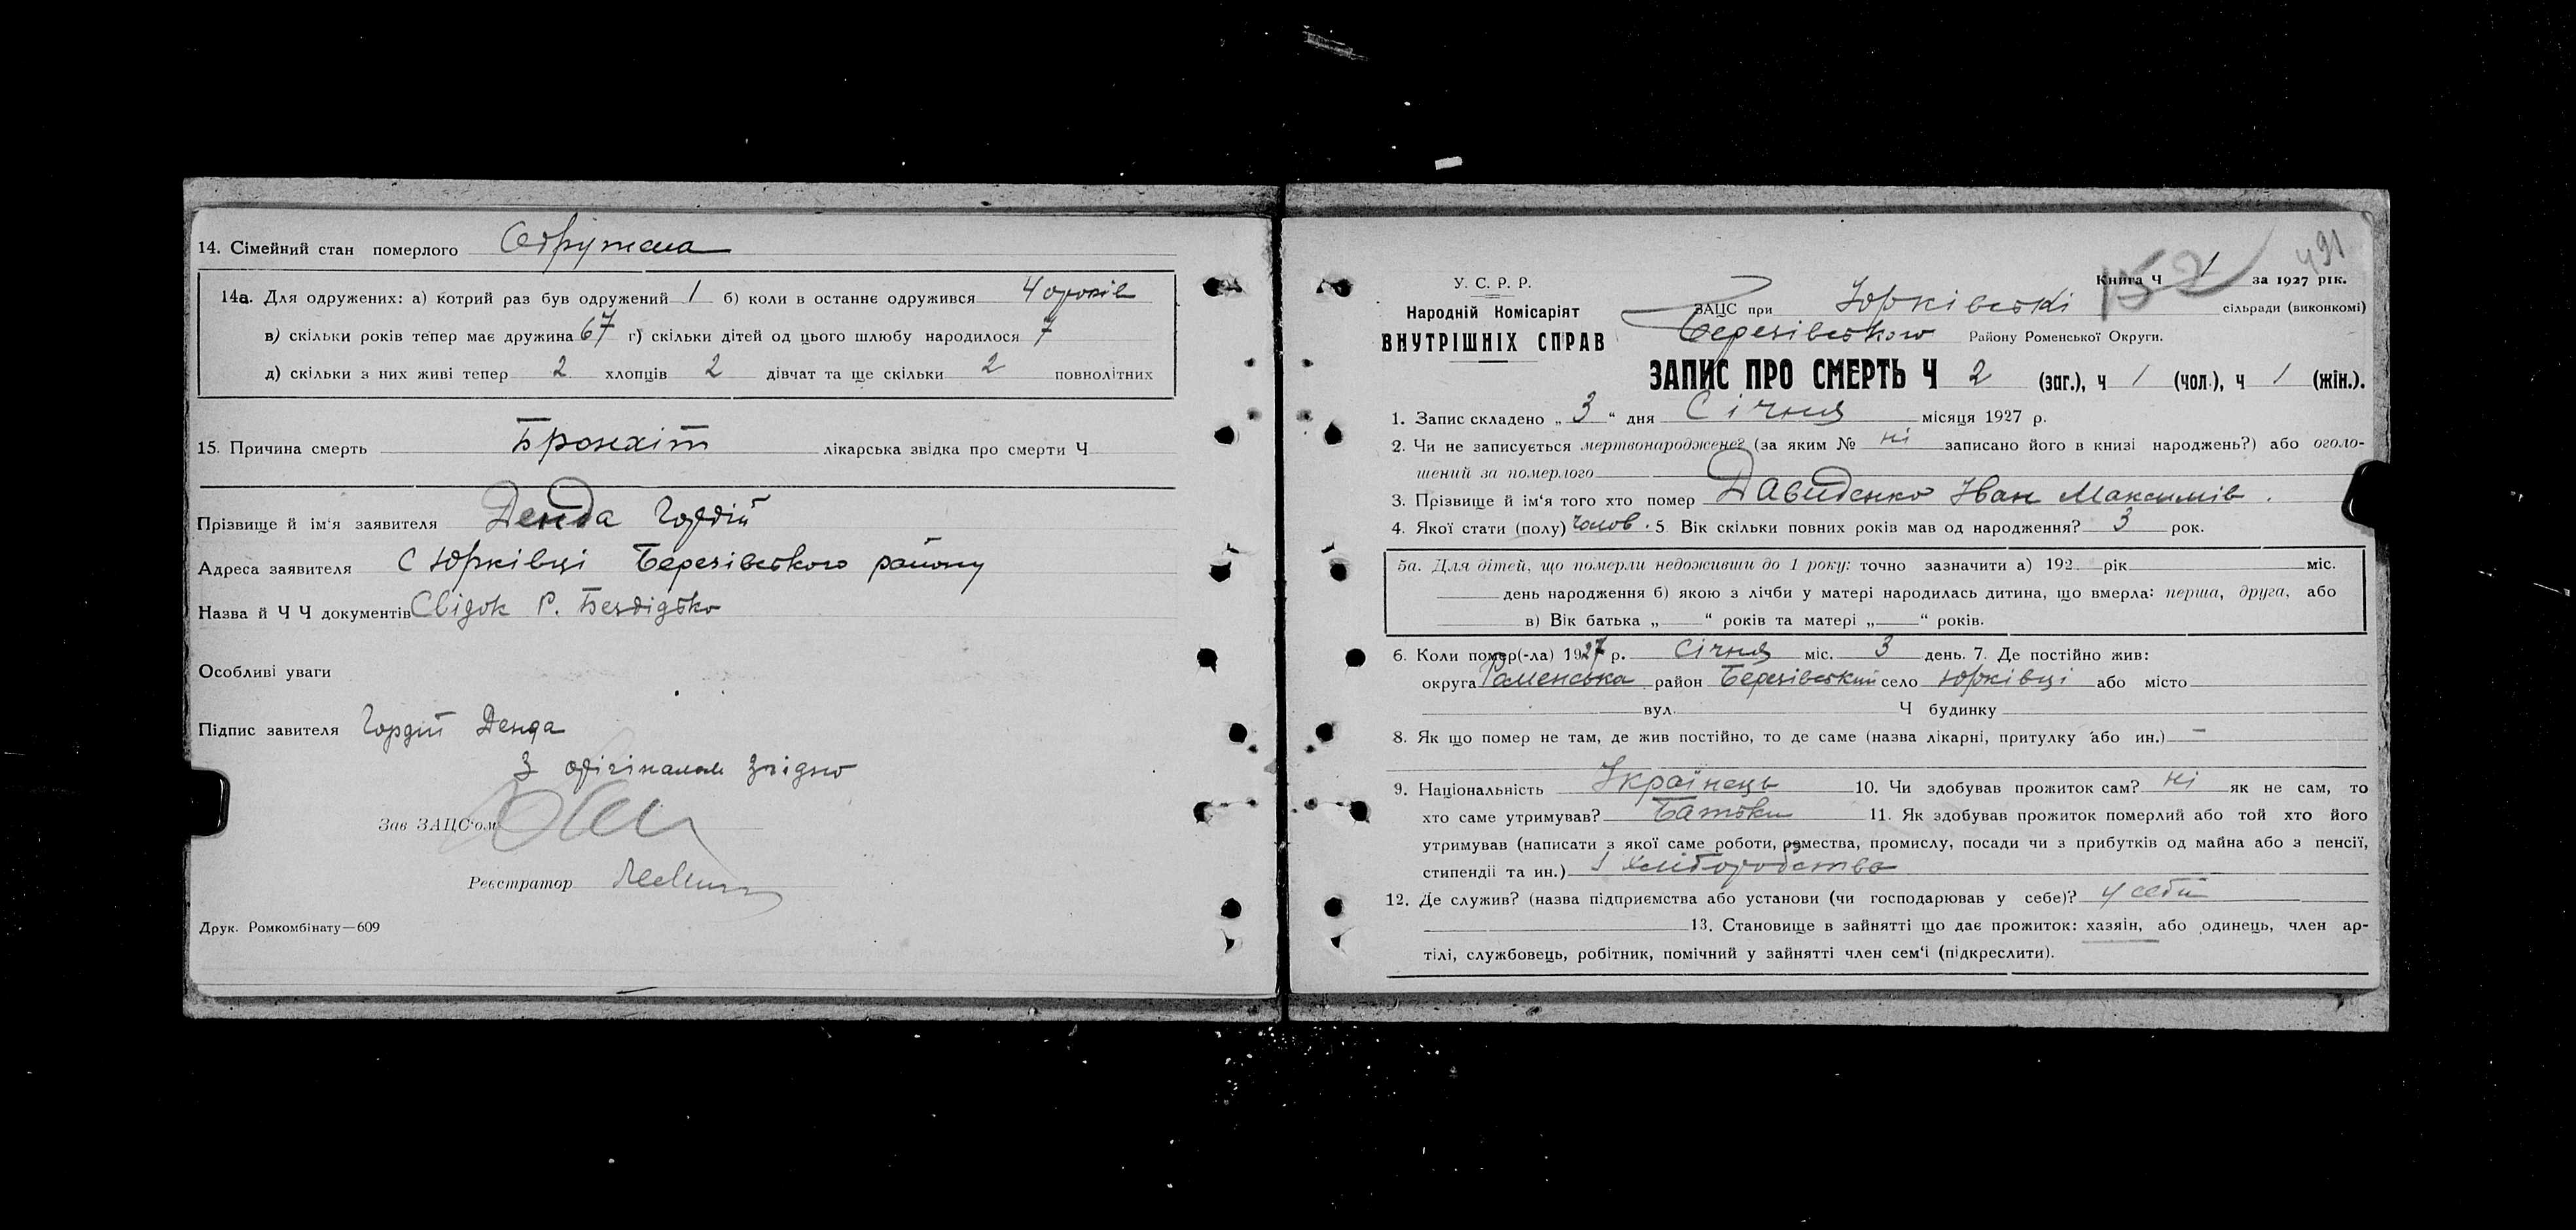 14. Сімейний стан померлого Одружена
14а. Для одружених: а) котрий раз був одружений 1 б) коли в останнє одружився 4 0 років
в) скільки років тепер має дружина 67 г) скільки дітей од цього шлюбу народилося 7
д) скільки з них живі тепер 2 хлопців 2 дівчат та ще скільки 2 повнолітних
15. Причина смерть Бронхіт лікарська звідка про смерти Ч
Прізвище й ім'я заявителя Денда Гордій
Адреса заявителя С Юрківці Березівського району
Назва й Ч Ч документів Свідок Р. Бездідько
Особливі уваги
Підпис завителя Гордій Денда
З орігіналом згідно
Зав ЗАЦС'ом
Реєстратор
Друк. Ромкомбінату—609
491
152
У. С. Р. Р.
Книга Ч 1 за 1927 рік.
Народній Комісаріят
ВНУТРІШНІХ СПРАВ
ЗАЦС при Юрківські сільради (виконкомі)
Березівського Району Роменської Округи.
ЗАПИС ПРО СМЕРТЬ Ч 2 (заг.), ч 1 (чол.), ч 1 (жін.).
1. Запис складено „ 3 “ дня Січня місяця 1927 р.
2. Чи не записується мертвонароджене? (за яким № ні записано його в книзі народжень?) або оголо-
шений за померлого
3. Прізвище й ім'я того хто помер Давиденко Іван Максимів.
4. Якої стати (полу) чолов. 5. Вік скільки повних років мав од народження? 3 рок.
5а. Для дітей, що померли недоживши до 1 року: точно зазначити а) 192 рік міс.
день народження б) якою з лічби у матері народилась дитина, що вмерла: перша, друга, або
в) Вік батька „ “ років та матері „ “ років.
6. Коли помер(-ла) 1927 р. Січня міс. 3 день. 7. Де постійно жив:
округа Роменська район Березівський село Юрківці або місто
вул. Ч будинку
8. Як що помер не там, де жив постійно, то де саме (назва лікарні, притулку або ин.) —
9. Національність Українець 10. Чи здобував прожиток сам? ні як не сам, то
хто саме утримував? Батьки 11. Як здобував прожиток померлий або той хто його
утримував (написати з якої саме роботи, ремества, промислу, посади чи з прибутків од майна або з пенсії,
стипендії та ин.) З хліборобства
12. Де служив? (назва підприємства або установи (чи господарював у себе)? у себе
13. Становище в зайнятті що дає прожиток: хазяін, або одинець, член ар-
тілі, службовець, робітник, помічний у зайнятті член сем'і (підкреслити).